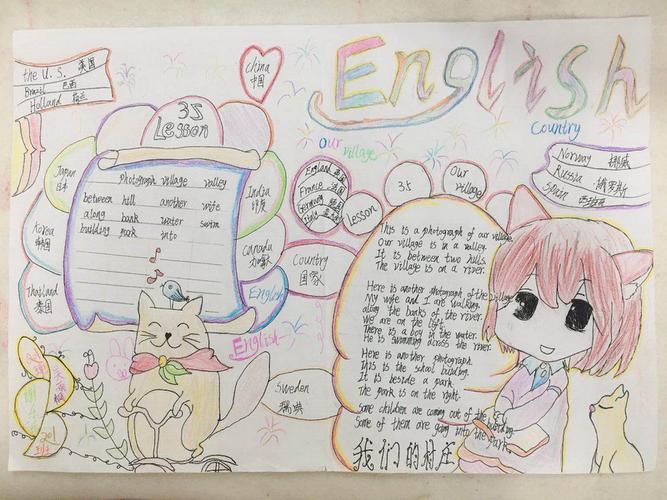 English
the U. S. 美国
Brazil 巴西
Holland 荷兰
China
中国
35
Lesson
photograph village valley
between hill another wife
along bank water swim
building park into
Japan
日本
Korea
韩国
Thailand
泰国
India
印度
Canada
加拿大
English
English
Our village
Country
England 英国
France 法国
Germany 德国
Lesson
35
Our
village
Norway 挪威
Russia 俄罗斯
Spain 西班牙
Country
国家
Sweden
瑞典
This is a photograph of our village.
Our village is in a valley.
It is between two hills.
The village is on a river.
Here is another photograph of the village.
My wife and I are walking
along the banks of the river.
We are on the left.
There is a boy in the water.
He is swimming across the river.
Here is another photograph.
This is the school building.
It is beside a park.
The park is on the right.
Some children are coming out of the building.
Some of them are going into the park.
我们的村庄